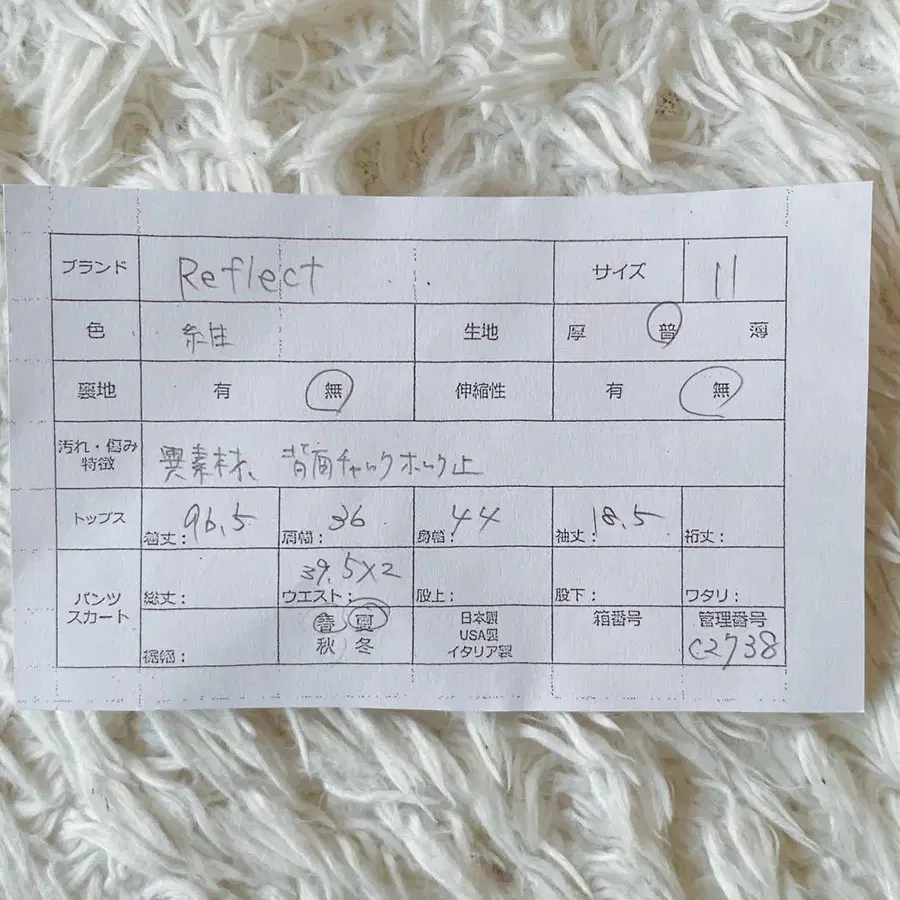 ブランド Reflect サイズ 11
色 生地 厚 普 薄
裏地 有 無 伸縮性 有 無
汚れ・傷み
特徴
異素材、背面チャックホック止
トップス 着丈: 96.5 肩幅: 36 身幅: 44 袖丈: 18.5 裄丈:
パンツ
スカート
総丈: ウエスト: 39.5×2 股上: 股下: ワタリ:
裾幅: 春 夏
秋 冬
日本製
USA製
イタリア製
箱番号 管理番号
C2738